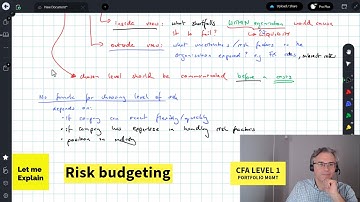 inside view: what shortfalls WITHIN organisation would cause
it to fail? eg Liquidity
outside view: what uncertainties / risk factors is the
organisation exposed? eg FX rates, interest rate
chosen level should be communicated before a crisis
No formula for choosing level of risk
depends on:
• if company can react flexibly/quickly
• if company has expertise in handling risk factors
• position in industry
Let me
Explain
Risk budgeting
CFA LEVEL 1
PORTFOLIO MGMT